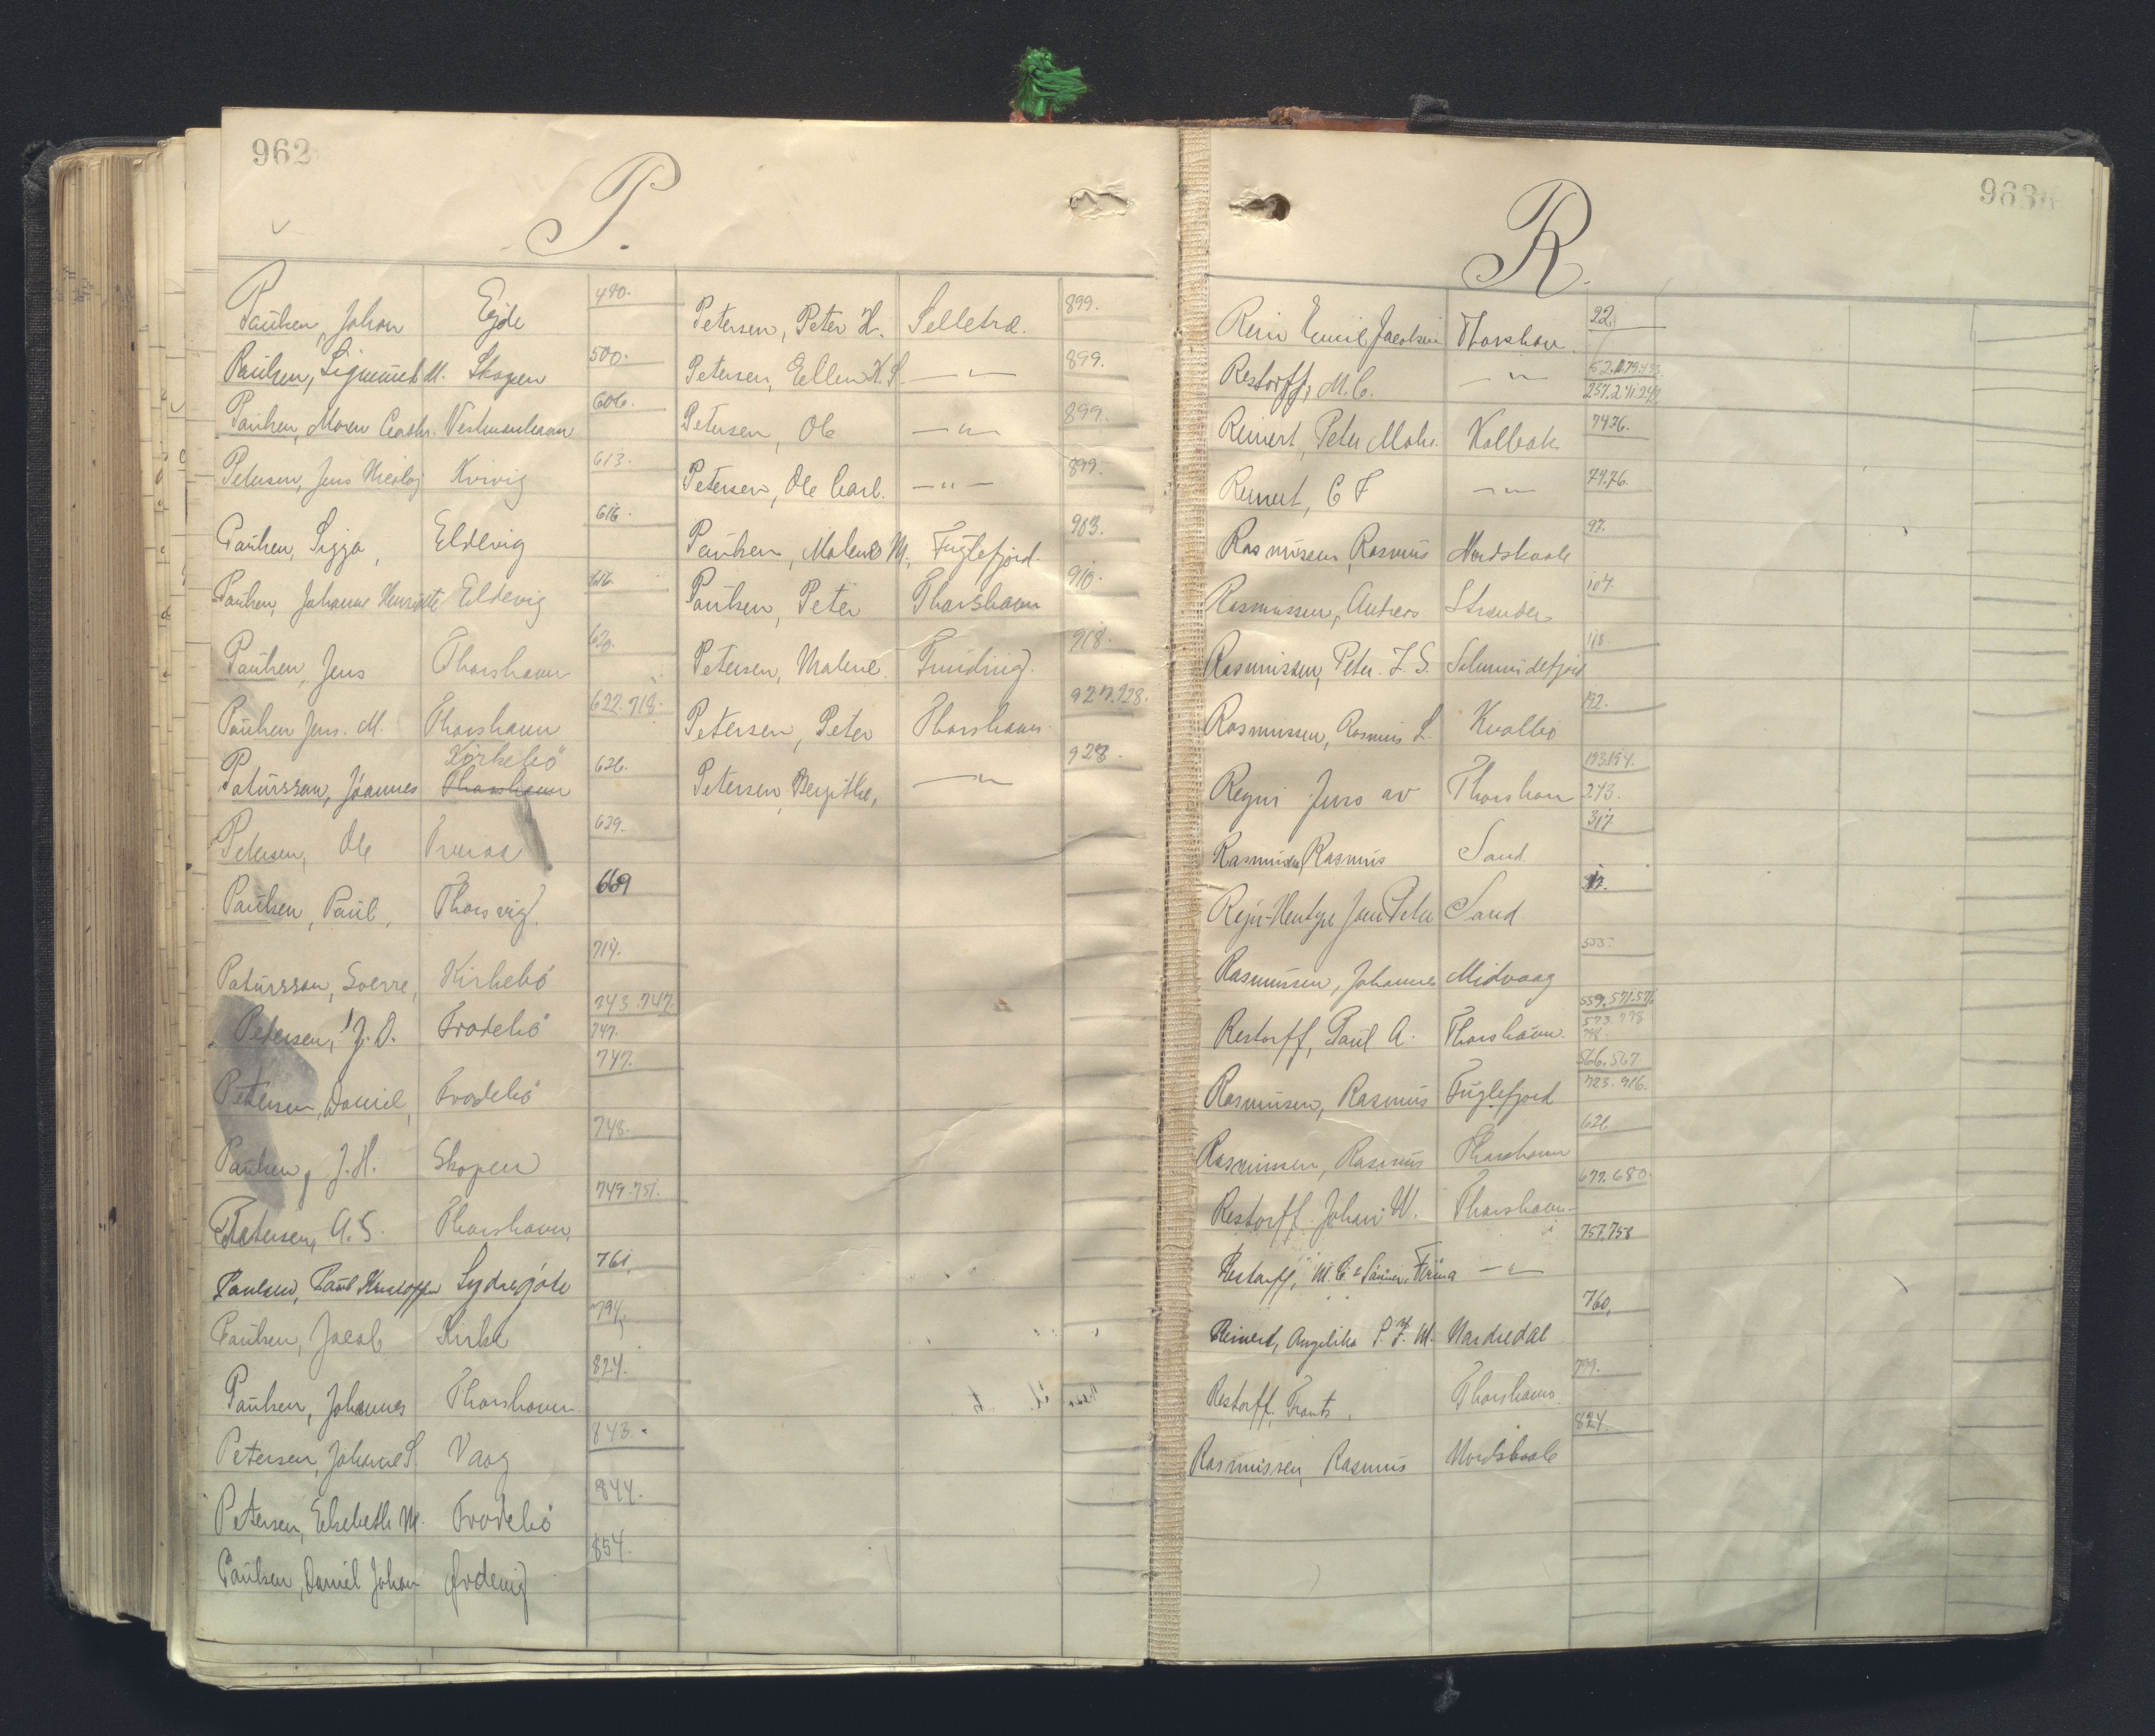 962
P.
Paulsen, Johan Ejde 490.
Paulsen, Sigmund M. Skopen 500.
Paulsen, Maren Cathr. Vestmanhavn 606.
Petersen, Jens Nicolaj Kvivig 613.
Paulsen, Sigga, Eldevig 616.
Paulsen, Johanne Henriette Eldevig 616.
Paulsen, Jens Thorshavn 620.
Paulsen Jens. M. Thorshavn 622. 718.
Patursson, Jóannes Kirkebö Thorshavn 626.
Petersen, Ole Tveraa 629.
Paulsen, Paul, Thorsvig. 669
Patursson, Sverre, Kirkebö 714.
Petersen, J. D. Frodebö 743. 747.
747.
Petersen, Daniel, Frodebö 747.
Paulsen, J. H. Skopen 748.
Petersen, A. S. Thorshavn, 749. 751.
Paulsen, Paul Kristoffer Sydregöte 761,
Paulsen, Jacob Kirke 794,
Paulsen, Johannes Thorshavn 824.
Petersen, Johane S. Vaag 843.
Petersen, Elsebeth M. Frodebö 844.
Paulsen, Daniel Johan Ördevig 854.
Petersen, Peter H. Selletræ. 899.
Petersen, Ellen K. S. — " — 899.
Petersen, Ole — " — 899.
Petersen, Ole Carl. — " — 899.
Paulsen, Malene M., Fuglefjord. 903.
Paulsen, Peter Thorshavn 910.
Petersen, Malene. Funding. 918.
Petersen, Peter Thorshavn 927. 928.
Petersen, Bergithe, — " 928.
963
R.
Rein Emil Jacobsen Thorshavn 22.
Restorff, M. C. — " — 237. 241. 242
Reinert, Peter Mohr. Kolbak 74 76.
Reinert, C F — " — 74 76.
Rasmussen, Rasmus Nordskaale 97.
Rasmussen, Andreas Strender 104.
Rasmussen, Peter. J. S. Salmundefjord 118
Rasmussen, Rasmus L. Kvalbö 192.
Reyni Jens av Thorshavn 193. 194.
243.
Rasmussen, Rasmus Sand. 317.
Rejn-Hentze Jens Peter Sand 317.
Rasmussen, Johannes Midvaag 555
Restorff, Paul A. Thorshavn. 559. 571. 576
573. 798
798.
Rasmussen, Rasmus Fuglefjord 566. 567.
723. 916.
Rasmussen, Rasmus Thorshavn 626
Restorff. Johan W. Thorshavn 677. 680.
Restorff, M. C. & Sönner, Firma — " — 757. 758
Reinert, Angelika S. F. M. Nardredal 760,
Restorff, Frants, Thorshavn. 799.
Rasmussen, Rasmus Nordskaale 824.